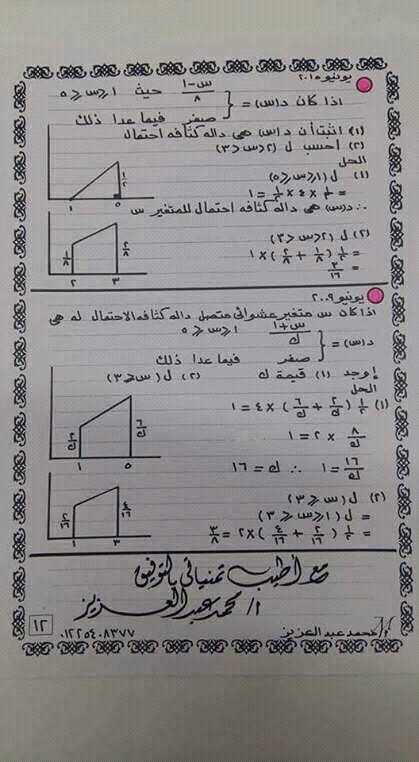 يونيو ٢٠١٠
اذا كان د(س) = { (س-١)/٨ حيث ١ ≤ س ≤ ٥
صفر فيما عدا ذلك
(١) اثبت أن د(س) هى داله كثافه احتمال
(٢) احسب ل (٢ < س < ٣)
الحل
(١) ل (١ ≤ س ≤ ٥)
= ١/٢ × ٤ × ١/٢ = ١
∴ د(س) هى داله كثافه احتمال للمتغير س
١/٢
١ ٥
(٢) ل (٢ < س < ٣)
= ١/٢ (١/٨ + ٢/٨) × ١
= ٣/١٦
١/٨ ٢/٨
٢ ٣
يونيو ٢٠٠٩
اذا كان س متغير عشوائى متصل داله كثافه الاحتمال له هى
د(س) = { (س+١)/ك ١ ≤ س ≤ ٥
صفر فيما عدا ذلك
إوجد (١) قيمة ك (٢) ل (س ≤ ٣)
الحل
(١) ١/٢ (٢/ك + ٦/ك) × ٤ = ١
٨/ك × ٢ = ١
١٦/ك = ١ ∴ ك = ١٦
٢/ك ٦/ك
١ ٥
(٢) ل (س ≤ ٣)
= ل (١ ≤ س ≤ ٣)
= ١/٢ (٢/١٦ + ٤/١٦) × ٢ = ٣/٨
٤/١٦
١ ٣
مع أطيب تمنياتى بالتوفيق
أ/ محمد عبد العزيز
أ/ محمد عبد العزيز
٠١٢٢٥٤٠٨٣٧٧
١٢